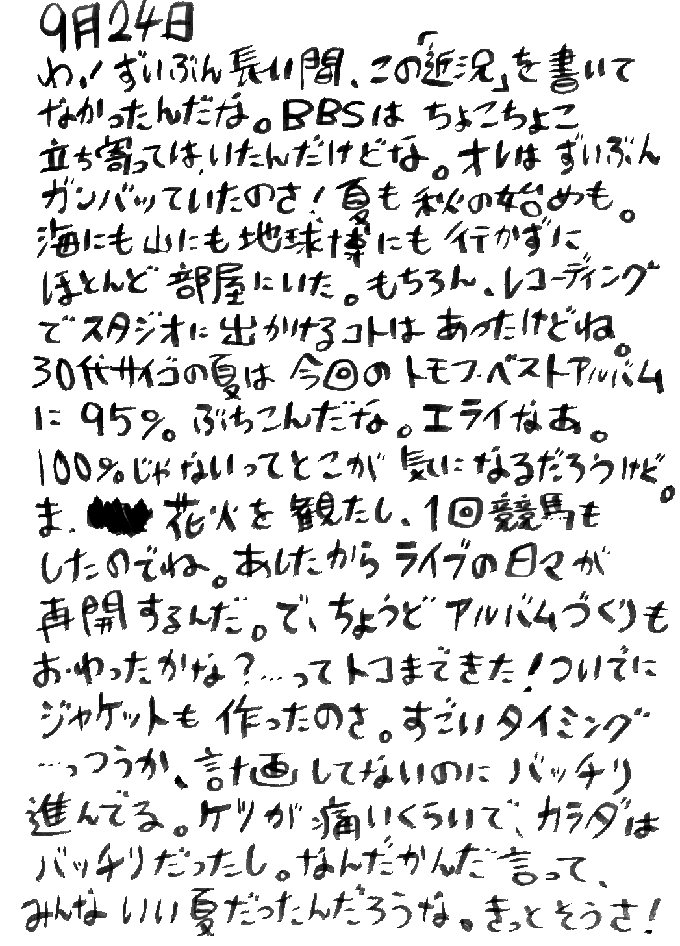 9月24日
わ!ずいぶん長い間、この「近況」を書いて
なかったんだな。BBSは ちょこちょこ
立ち寄っては、いたんだけどな。オレは ずいぶん
ガンバッていたのさ!夏も 秋の始めも。
海にも山にも 地球博にも 行かずに
ほとんど 部屋にいた。もちろん、レコーディング
でスタジオに出かけるコトは あったけどね。
30代サイゴの夏は 今回の トモフ・ベストアルバム
に 95%。ぶちこんだな。エライなあ。
100%じゃないってとこが 気になるだろうけど。
ま、 花火を 観たし、1回競馬も
したのでね。あしたから ライブの日々が
再開するんだ。で、ちょうど アルバムづくりも
おわったかな?…ってトコまできた!ついでに
ジャケットも 作ったのさ。すごいタイミング
…っつうか、計画してないのに バッチリ
進んでる。ケツが痛いくらいで、カラダは
バッチリだったし。なんだかんだ言って、
みんな いい 夏だったんだろうな。きっとそうさ!